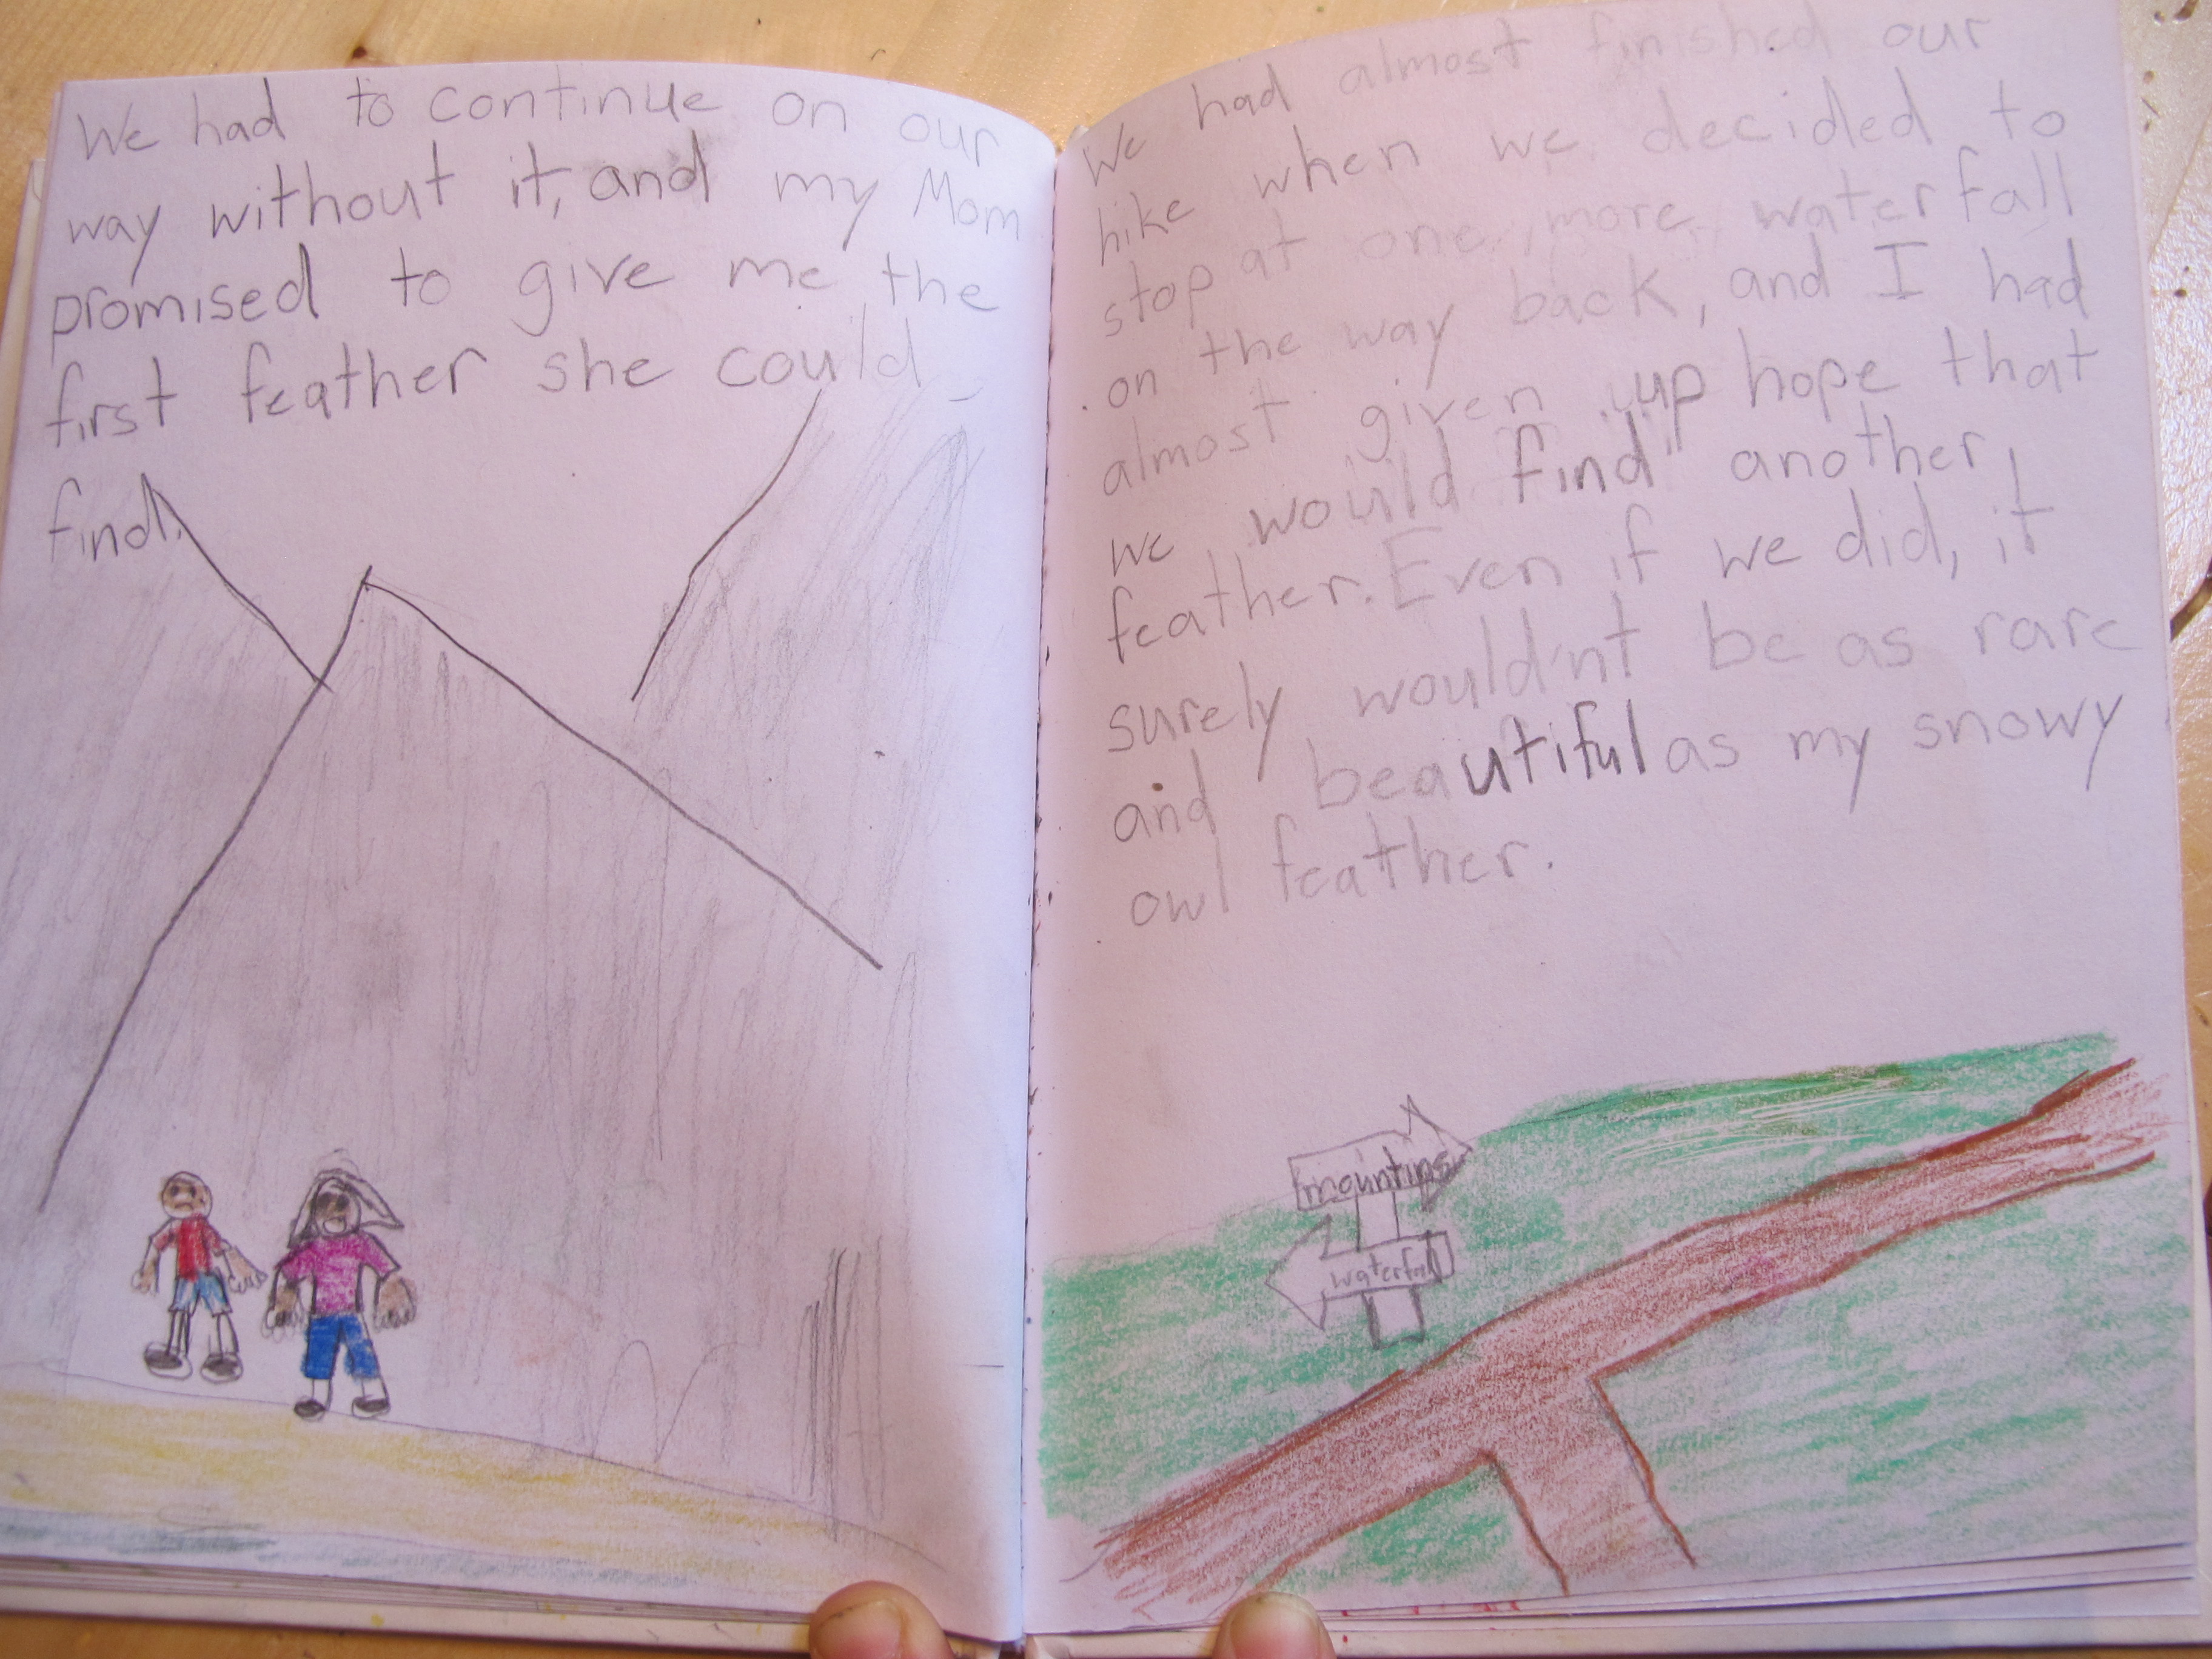 We had to continue on our
way without it, and my Mom
promised to give me the
first feather she could
find.
We had almost finished our
hike when we decided to
stop at one more waterfall
on the way back, and I had
almost given up hope that
we would find another
feather. Even if we did, it
surely would'nt be as rare
and beautiful as my snowy
owl feather.
mountins
waterfall